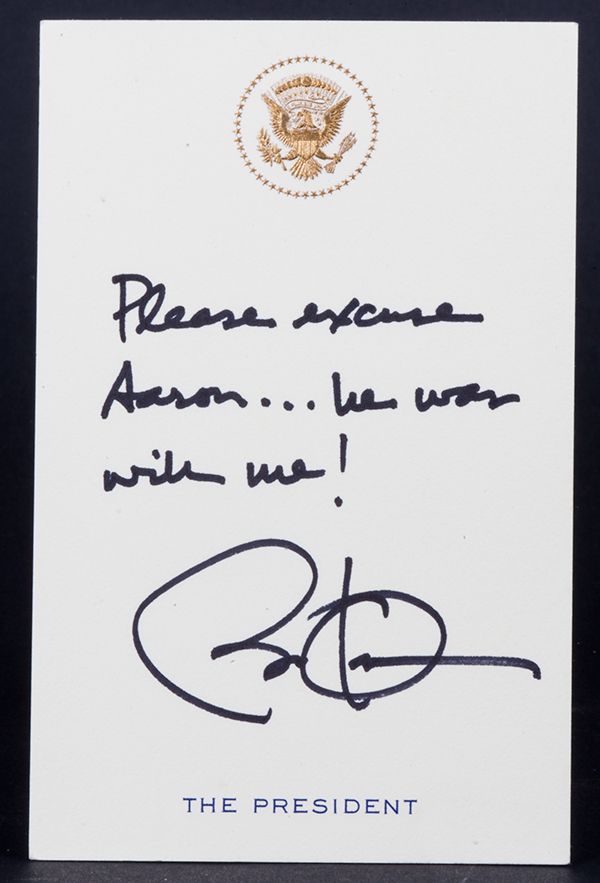 Please excuse
Aaron... he was
with me!
THE PRESIDENT